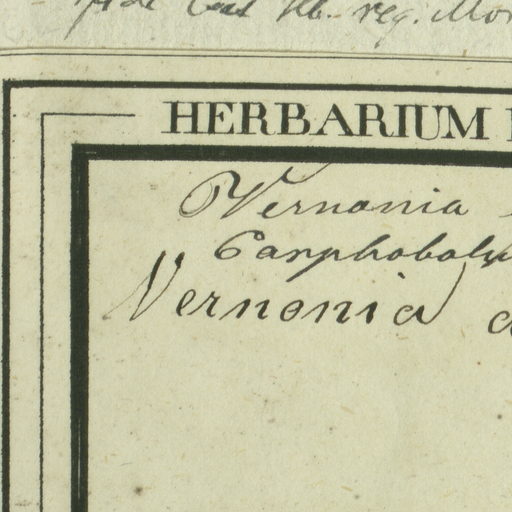 reg. Mon
HERBARIUM
Vernonia
Carphobolu
Vernonia a